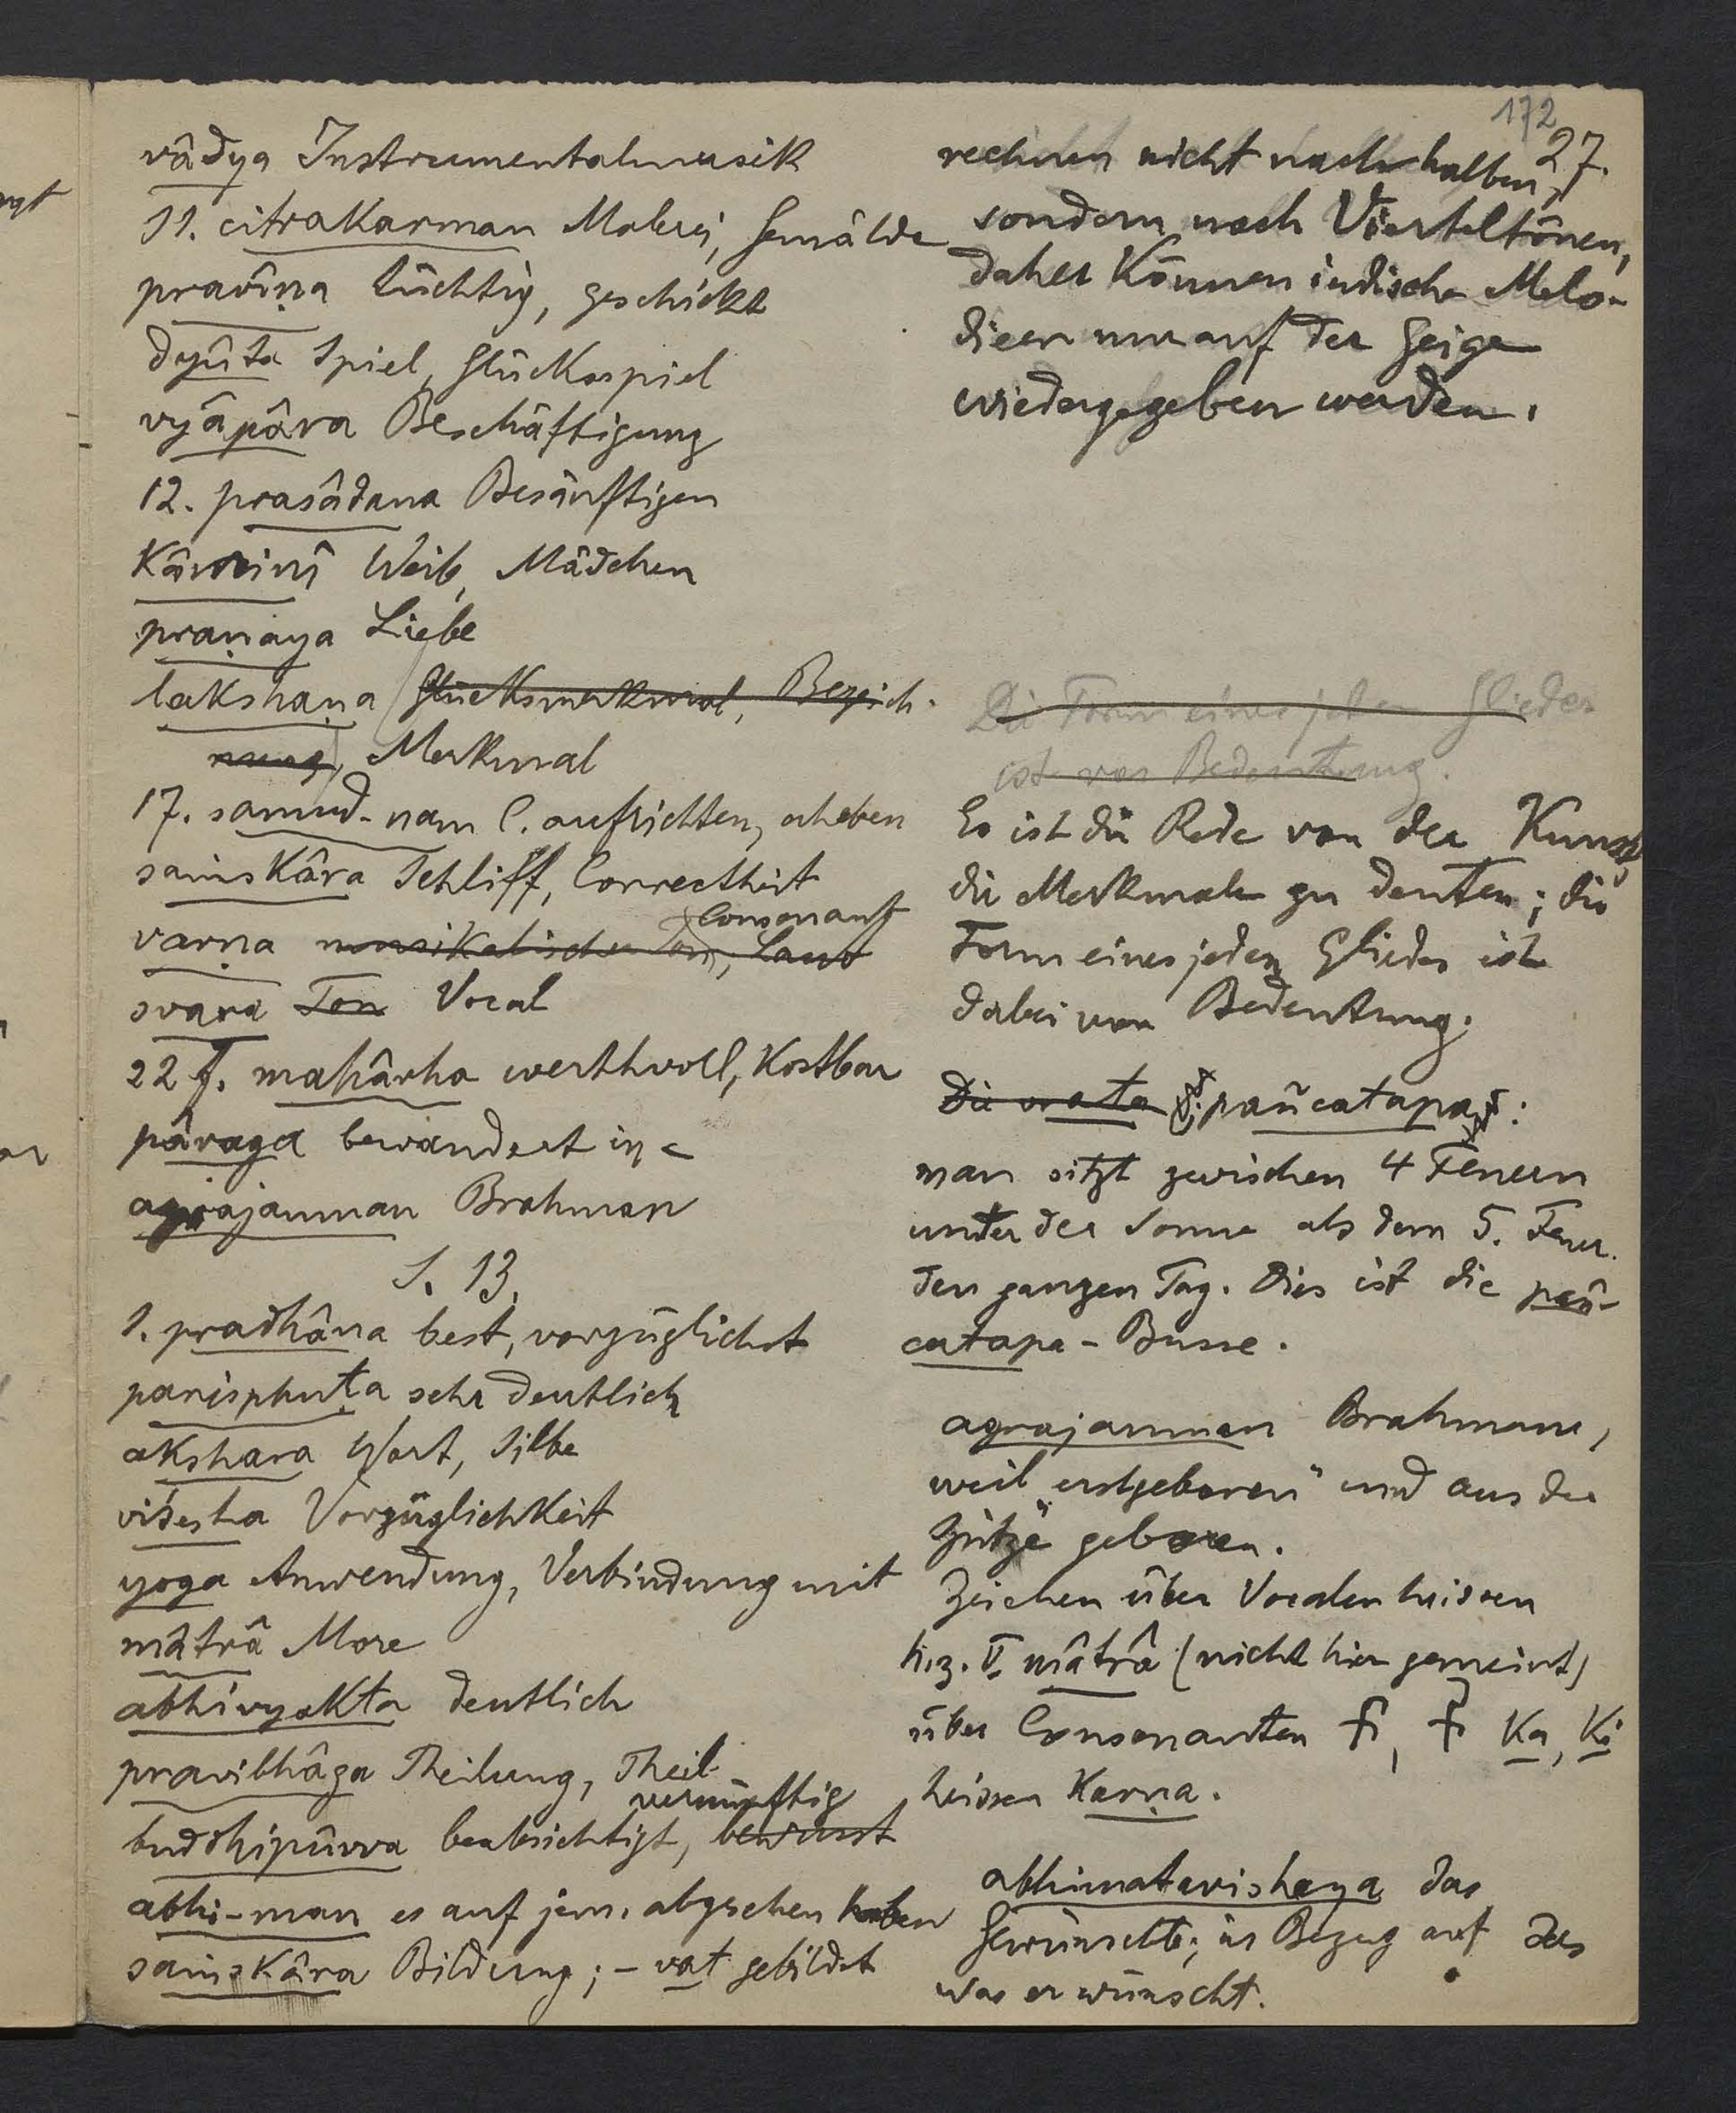 172
27.
vâdya Instrumentalmusik
11. citrakarman Malerei, Gemälde
pravîṇa tüchtig, geschickt
dyûta Spiel, Glücksspiel
vyâpâra Beschäftigung
12. prasâdana Besänftigen
Kâminî Weib, Mädchen
praṇaya Liebe
lakshaṇa Glücksmerkmal, Bezeich-
nung, Merkmal
17. samud-nam C. aufrichten, erheben
saṁskâra Schliff, Correctheit
Consonant
varṇa musikalischer Ton, Laut
svara Ton Vocal
22 f. mahârha werthvoll, kostbar
pâraga bewandert in
agrajanman Brahman
S. 13.
1. pradhâna best, vorzüglichst
parisphuṭa sehr deutlich
akshara Wort, Silbe
viśesha Vorzüglichkeit
yoga Anwendung, Verbindung mit
mâtrâ More
abhivyakta deutlich
pravibhâga Theilung, Theil
vernünftig
buddhipûrva beabsichtigt, bewusst
abhi-man es auf jem. abgesehen haben
saṁskâra Bildung; -vat gebildet
rechnen nicht nach halben,
sondern nach Vierteltönen,
daher können indische Melo-
dieen nur auf der Geige
wiedergegeben werden.
Die Form eines jeden Gliedes
ist von Bedeutung.
Es ist die Rede von der Kunst,
die Merkmale zu deuten; die
Form eines jeden Gliedes ist
dabei von Bedeutung.
Die vrata pañcatapas:
man sitzt zwischen 4 Feuern
unter der Sonne als dem 5. Feuer
den ganzen Tag. Dies ist die pañ-
catapa-Busse.
agrajanman Brahmane,
weil "erstgeboren" und aus der
"Spitze" geboren.
Zeichen über Vocalen heissen
h.z. mâtrâ (nicht hier gemeint)
über Consonanten Ka, Ki
heissen Karṇa.
abhimatavishaya das
Gewünschte; in Bezug auf das
was er wünscht.